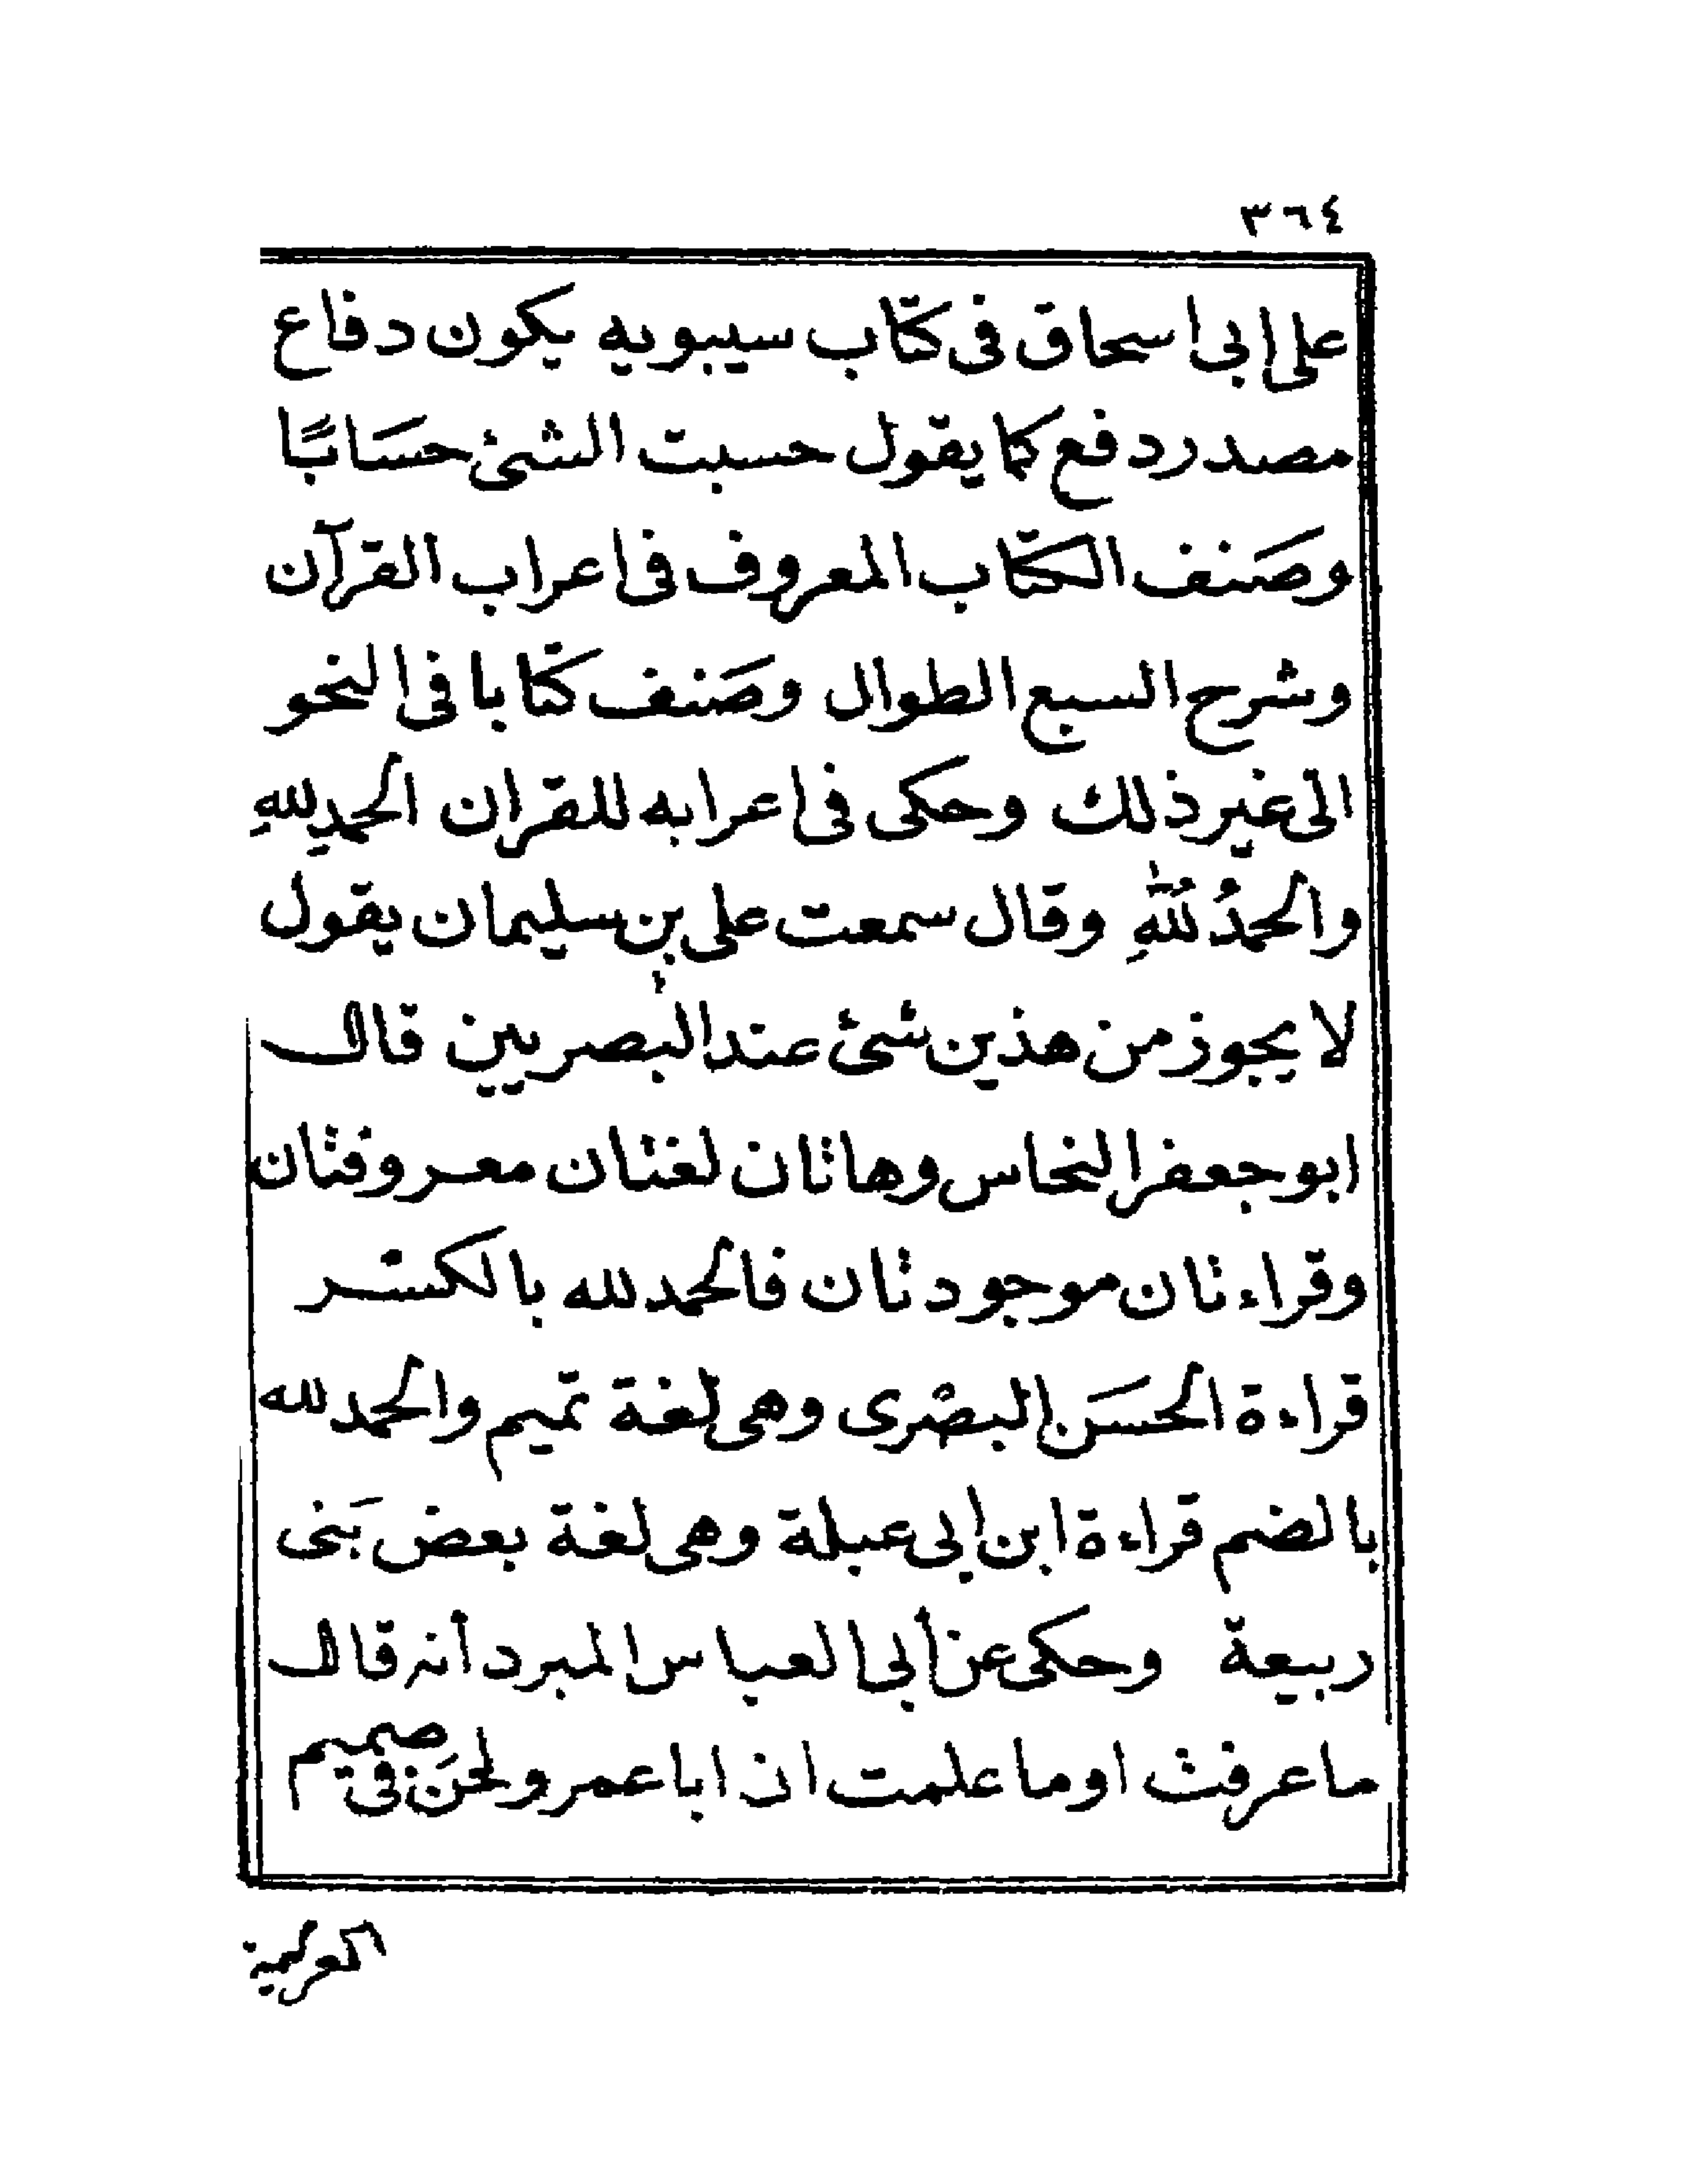 ٣٦٤
على ابى اسحاق فى كتاب سيبويه يكون دفاع
مصدر دفع كما يقول حسبت الشئ حسَابًا
وصَنف الكتاب المعروف فى اعراب القرآن
وشرح السبع الطوال وصَنف كتابا فى النحو
الى غير ذلك وحكى فى اعرابه للقران الحمدِ للهِ
والحمدُ لُلهِ وقال سمعت على بن سليمان يقول
لا يجوز من هذين شئ عند البصريين قال
ابو جعفر النحاس وهاتان لغتان معروفتان
وقراءتان موجودتان فالحمد لله بالكسر
قراءة الحسَن البصرى وهى لغة تميم والحمد لله
بالضم قراءة ابن ابى عبلة وهى لغة بعض بَنى
ربيعة وحكى عن أبى العباس المبرد أنه قال
ما عرفت او ما علمت ان ابا عمرو لحَن فى صميم
العربية